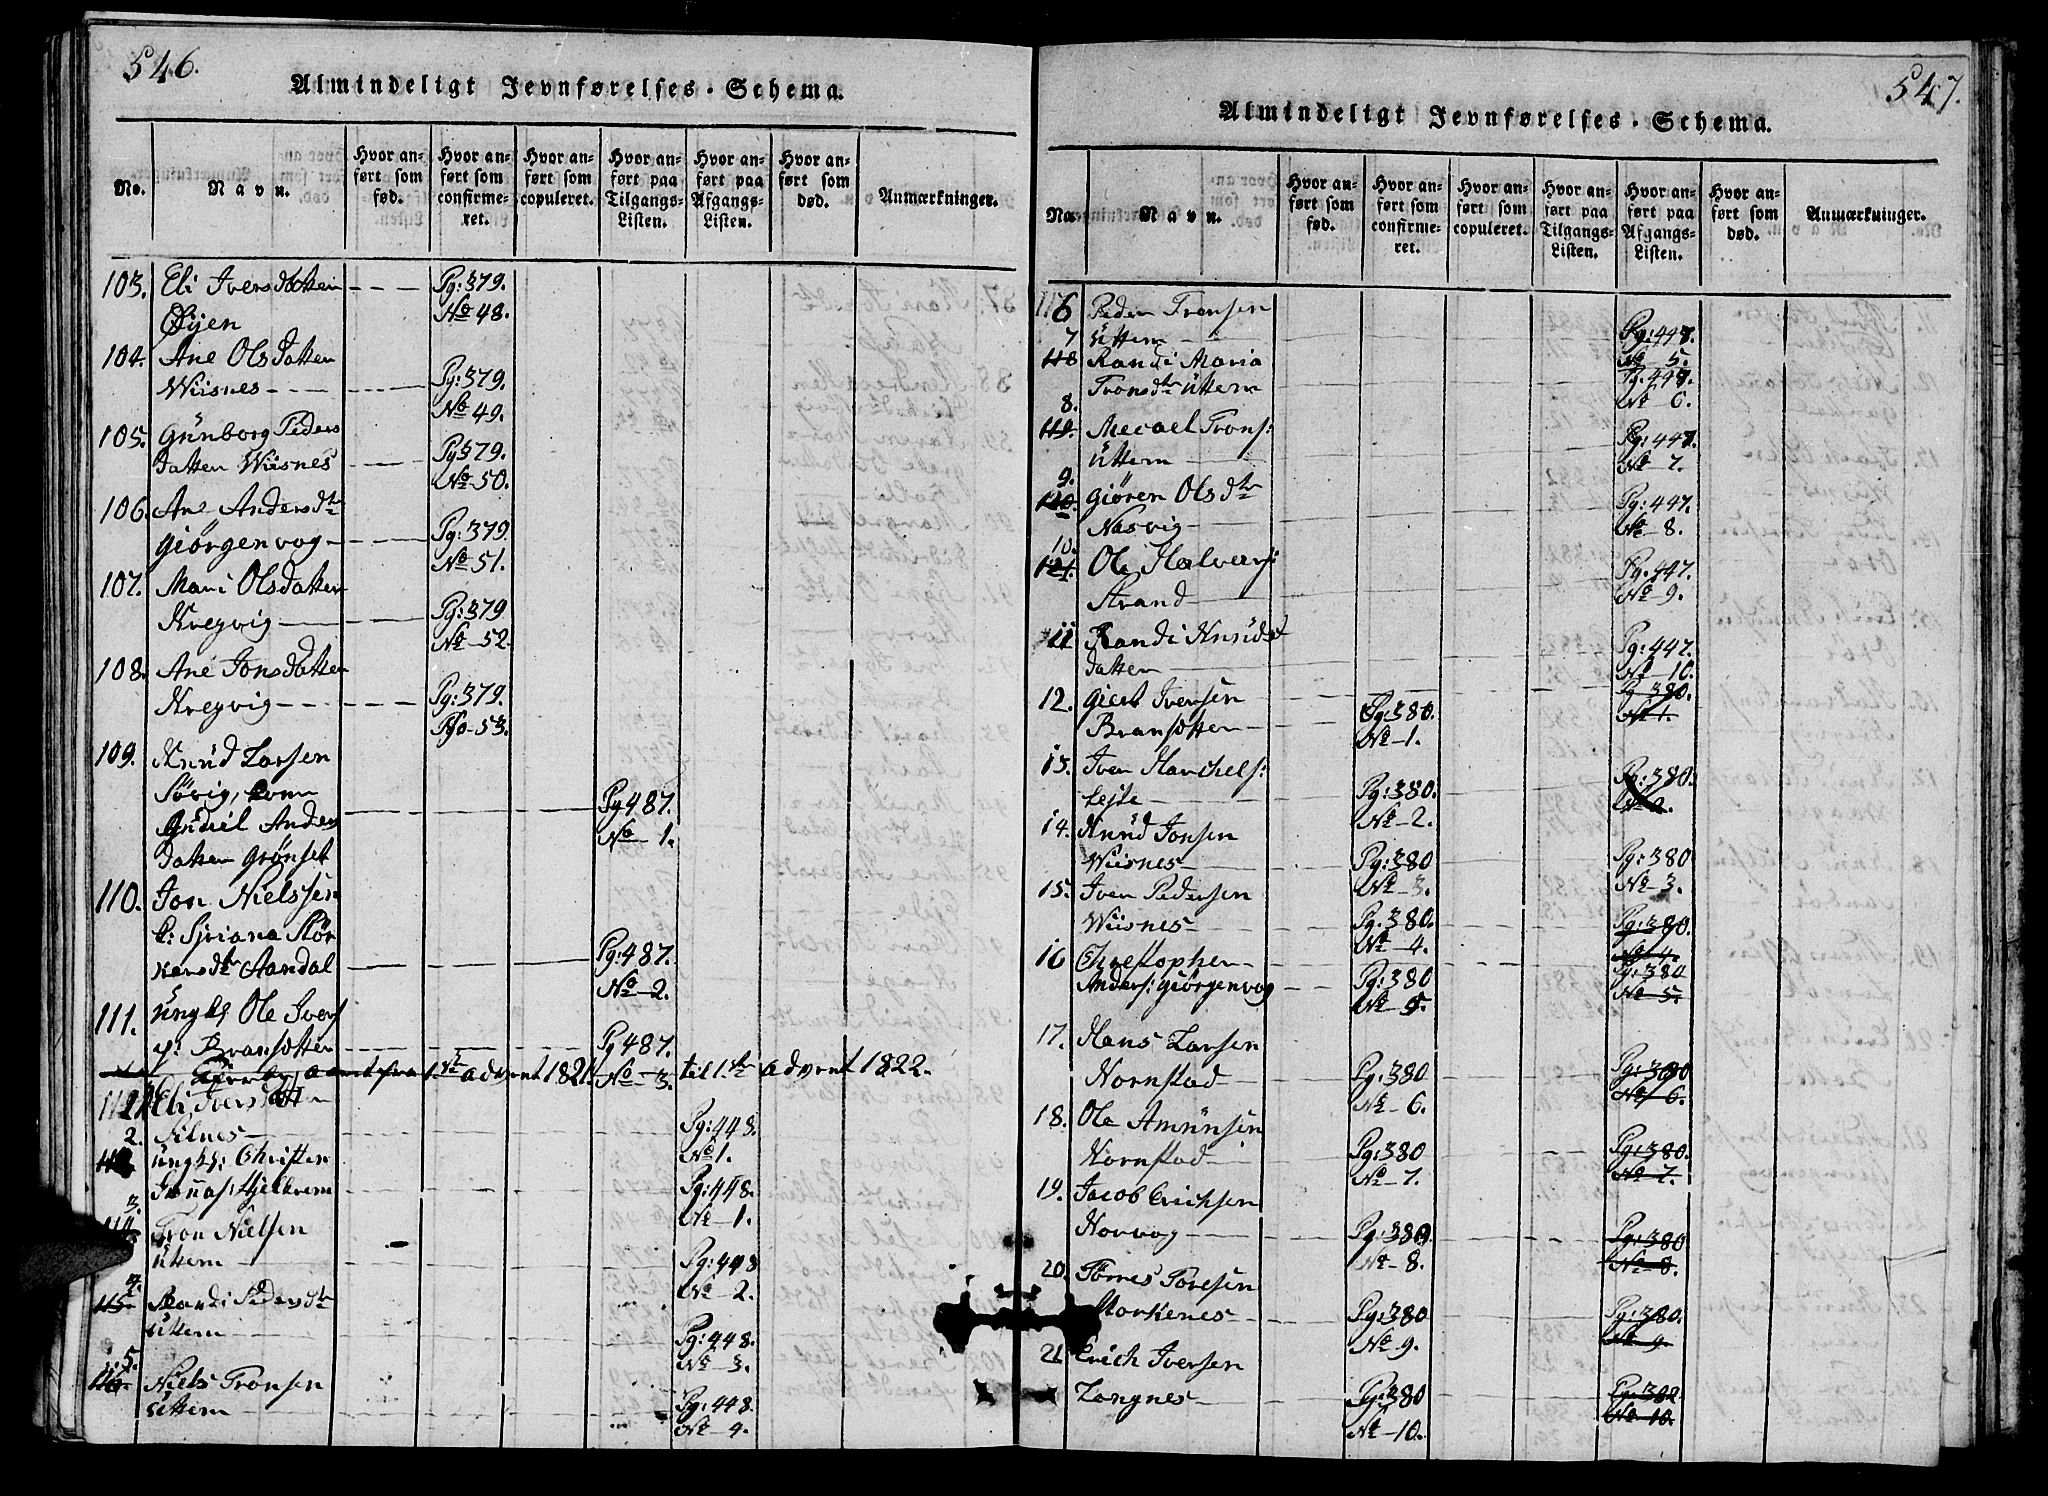 546.
Almindeligt Jevnførelses-Schema.
No.
Navn.
Hvor an-
ført som
fød.
Hvor an-
ført som
confirme-
ret.
Hvor an-
ført som
copuleret.
Hvor an-
ført paa
Tilgangs-
Listen.
Hvor an-
ført paa
Afgangs-
Listen.
Hvor an-
ført som
død.
Anmærkninger.
103. Eli Iversdatter Pg: 379.
Øyen No 48.
104. Ane Olsdatter
Wiisnes Pg: 379.
No 49.
105. Günborg Peders
datter Wiisnes Pg 379.
No 50.
106. Ane Andersdtr
Giörgenvog Pg: 379.
No 51.
107. Mari Olsdatter
Kregvig Pg: 379
No 52.
108. Ane Jonsdatter
Kregvig Pg: 379.
No 53.
109. Knüd Larsen
Sövig, kone
Gudiel Anders
datter Grönset
Pg 487.
No 1.
110. Jon Nielssen
k: Siriana Stör
kersdtr Aandal Pg: 487.
No 2.
111. üngk Ole Ivers
p: Bransötter Pg 487.
No 3.
fra 1ste advent 1821 til 1ste advent 1822.
112 1 Eli Iversdatter
2. Silnes Pg: 448.
No 1.
üngk: Christen
Jonas: Hjelkrem Pg: 448.
No 1.
3.
114 Tron Nielsen
üttem Pg: 448
No 2.
4.
115 Randi Pedersdtr
üttem Pg: 448.
No 3.
5.
116 Niels Tronsen
üttem Pg: 448.
No 4.
547.
Almindeligt Jevnførelses-Schema.
No.
Navn.
Hvor an-
ført som
fød.
Hvor an-
ført som
confirme-
ret.
Hvor an-
ført som
copuleret.
Hvor an-
ført paa
Tilgangs-
Listen.
Hvor an-
ført paa
Afgangs-
Listen.
Hvor an-
ført som
død.
Anmærkninger.
6 Peder Tronsen
üttem Pg: 447.
No 5.
7
118 Randi Maria
Tronsdtr üttem Pg. 447.
No 6.
8.
119. Mecael Trons:
üttem Pg: 447.
No 7.
9.
120. Giören Olsdtr
Nasvig Pg: 447.
No 8.
10.
121. Ole Halvars:
Strand Pg: 447.
No 9.
11 Randi Knüds
datter Pg: 447.
No 10.
12. Giert Iversen Pg 380.
Bransötter Pg: 380. No 1.
No 1.
13. Iver Harchels:
Leite Pg: 380. Pg: 380.
No 2. No 2.
14. Knüd Jonsen
Wiisnes Pg: 380 Pg: 380
No 3. No 3.
15. Iver Pedersen
Wiisnes Pg: 380. Pg: 380.
No 4. No 4.
16 Christopher
Anders: Giörgenvog Pg: 380 Pg: 380
No 5. No 5.
17. Hans Larsen
Hornstad Pg: 380 Pg: 380
No 6. No 6.
18. Ole Amünsen
Hornstad Pg: 380 Pg: 380.
No 7. No 7.
19. Jacob Erichsen
Horvog Pg: 380 Pg: 380
No 8. No 8.
20. Torres Toresen
Storkenes Pg: 380 Pg: 380.
No 9. No 9.
21 Erich Iversen
Langnes Pg: 380 Pg: 380
No 10. No 10.